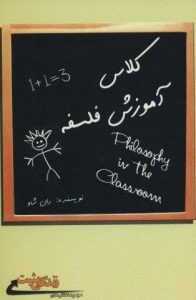 کلاس
1+1=3
آموزش فلسفه
Philosophy
in the
Classroom
نویسنده: ران شاو